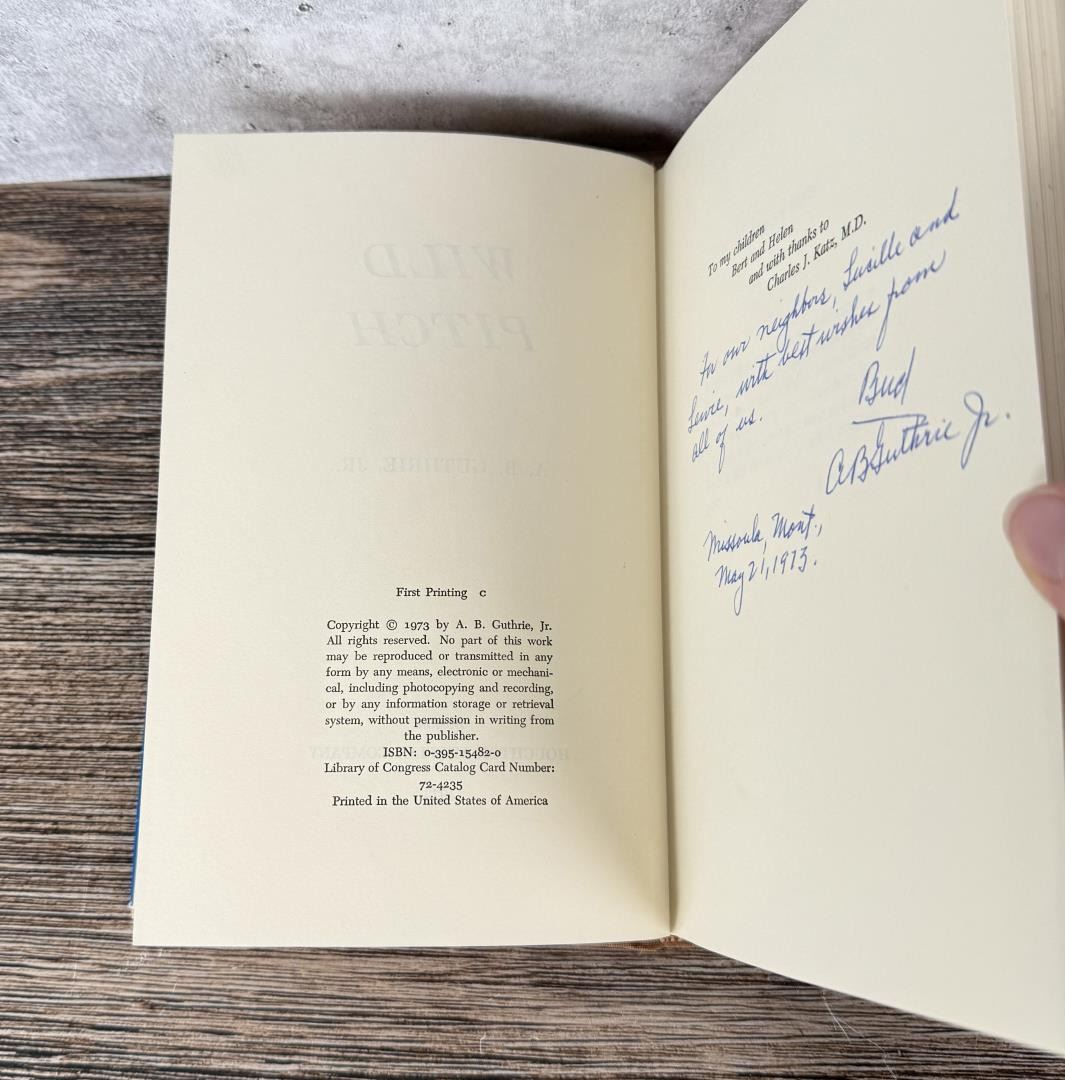 First Printing c
Copyright © 1973 by A. B. Guthrie, Jr.
All rights reserved. No part of this work
may be reproduced or transmitted in any
form by any means, electronic or mechani-
cal, including photocopying and recording,
or by any information storage or retrieval
system, without permission in writing from
the publisher.
ISBN: 0-395-15482-0
Library of Congress Catalog Card Number:
72-4235
Printed in the United States of America
To my children
Bert and Helen
and with thanks to
Charles J. Katz, M.D.
For our neighbors, Lucille and
Lewie, with best wishes from
all of us.
Bud
A B Guthrie Jr.
Missoula, Mont.,
May 21, 1973.